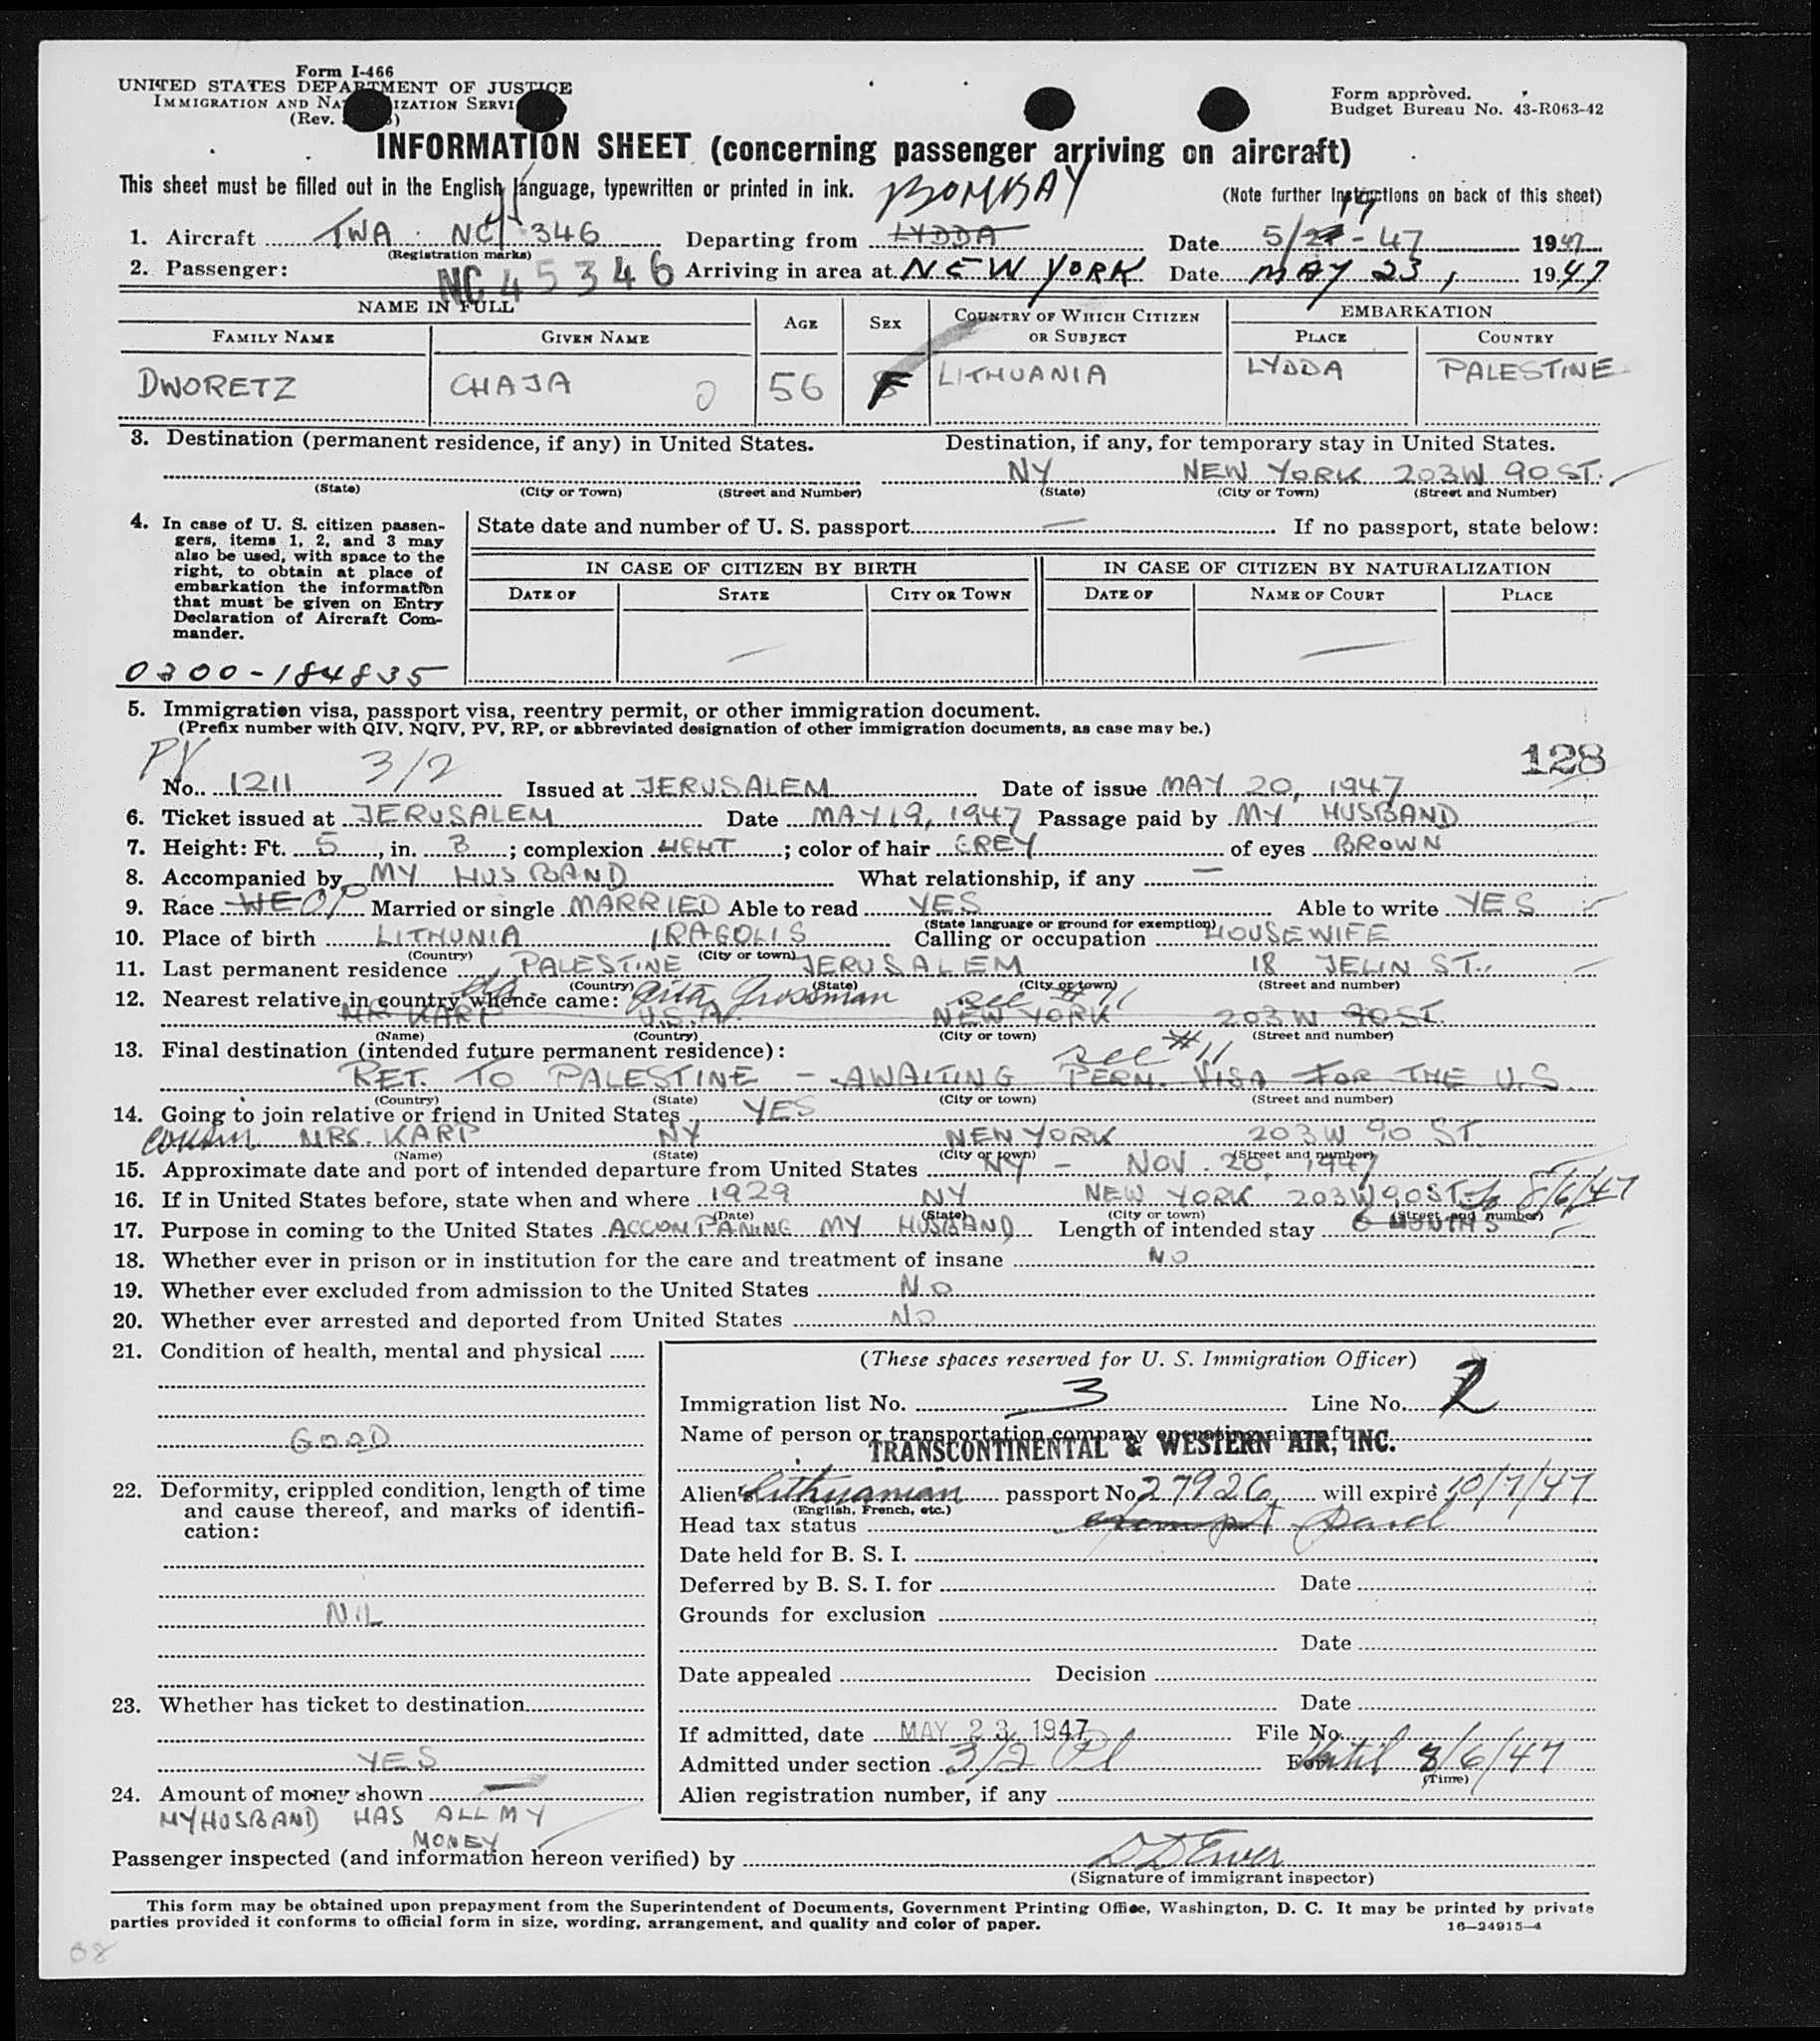 Form I-466
UNITED STATES DEPARTMENT OF JUSTICE
IMMIGRATION AND NA IZATION SERVI
(Rev. )
Form approved.
Budget Bureau No. 43-R063-42
INFORMATION SHEET (concerning passenger arriving on aircraft)
This sheet must be filled out in the English language, typewritten or printed in ink. BOMBAY (Note further Instructions on back of this sheet)
1. Aircraft TWA NC 45 346 Departing from LYDDA Date 5/ 17 - 47 1947
(Registration marks)
2. Passenger: NC 45346 Arriving in area at NEW YORK Date MAY 23, 1947
NAME IN FULL AGE SEX COUNTRY OF WHICH CITIZEN OR SUBJECT EMBARKATION
FAMILY NAME GIVEN NAME PLACE COUNTRY
DWORETZ CHAJA 0 56 F LITHUANIA LYDDA PALESTINE
3. Destination (permanent residence, if any) in United States. Destination, if any, for temporary stay in United States.
NY NEW YORK 203W 90 ST.
(State) (City or Town) (Street and Number) (State) (City or Town) (Street and Number)
4. In case of U. S. citizen passen-
gers, items 1, 2, and 3 may
also be used, with space to the
right, to obtain at place of
embarkation the information
that must be given on Entry
Declaration of Aircraft Com-
mander.
State date and number of U. S. passport — If no passport, state below:
IN CASE OF CITIZEN BY BIRTH IN CASE OF CITIZEN BY NATURALIZATION
DATE OF STATE CITY OR TOWN DATE OF NAME OF COURT PLACE
— —
0300-184835
5. Immigration visa, passport visa, reentry permit, or other immigration document.
(Prefix number with QIV, NQIV, PV, RP, or abbreviated designation of other immigration documents, as case may be.)
PV 3/2 128
No. 1211 Issued at JERUSALEM Date of issue MAY 20, 1947
6. Ticket issued at JERUSALEM Date MAY 19, 1947 Passage paid by MY HUSBAND
7. Height: Ft. 5, in. 3; complexion LIGHT; color of hair GREY of eyes BROWN
8. Accompanied by MY HUSBAND What relationship, if any —
9. Race HE Married or single MARRIED Able to read YES Able to write YES
(State language or ground for exemption)
10. Place of birth LITHUNIA IRAGOLIS Calling or occupation HOUSEWIFE
(Country) (City or town)
11. Last permanent residence PALESTINE JERUSALEM 18 JELIN ST.
(Country) (State) (City or town) (Street and number)
12. Nearest relative in country whence came: Grossman see #11
MR KARP U.S.A. NEW YORK 203W 90 ST.
(Name) (Country) (City or town) (Street and number)
13. Final destination (intended future permanent residence): see #11
RET. TO PALESTINE - AWAITING PERM. VISA FOR THE U.S.
(Country) (State) (City or town) (Street and number)
14. Going to join relative or friend in United States YES
cousin MRS. KARP NY NEW YORK 203W 90 ST.
(Name) (State) (City or town) (Street and number)
15. Approximate date and port of intended departure from United States NY - NOV. 20, 1947
16. If in United States before, state when and where 1929 NY NEW YORK 203W 90 ST. to 8/6/47
(Date) (State) (City or town) (Street and number)
17. Purpose in coming to the United States ACCOMPANING MY HUSBAND Length of intended stay 6 MONTHS
18. Whether ever in prison or in institution for the care and treatment of insane NO
19. Whether ever excluded from admission to the United States NO
20. Whether ever arrested and deported from United States NO
21. Condition of health, mental and physical
GOOD
22. Deformity, crippled condition, length of time
and cause thereof, and marks of identifi-
cation:
NIL
23. Whether has ticket to destination
YES
24. Amount of money shown —
MY HUSBAND HAS ALL MY
MONEY
(These spaces reserved for U. S. Immigration Officer)
Immigration list No. 3 Line No. 2
Name of person or transportation company operating aircraft
TRANSCONTINENTAL & WESTERN AIR, INC.
Alien's Lithuanian passport No. 27926 will expire 10/7/47
(English, French, etc.)
Head tax status exempt Paid
Date held for B. S. I.
Deferred by B. S. I. for Date
Grounds for exclusion
Date
Date appealed Decision
Date
If admitted, date MAY 23 1947 File No.
Admitted under section 3/2 Pl For Until 8/6/47
(Time)
Alien registration number, if any
Passenger inspected (and information hereon verified) by
(Signature of immigrant inspector)
This form may be obtained upon prepayment from the Superintendent of Documents, Government Printing Office, Washington, D. C. It may be printed by private
parties provided it conforms to official form in size, wording, arrangement, and quality and color of paper. 16—24915-4
08